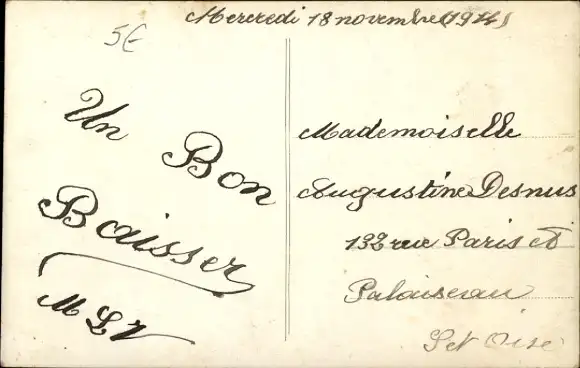 Mercredi 18 novembre (1914)
5€
Un Bon
Baisser
Mademoiselle
Augustine Desnus
132 rue Paris
Palaiseau
S et Oise